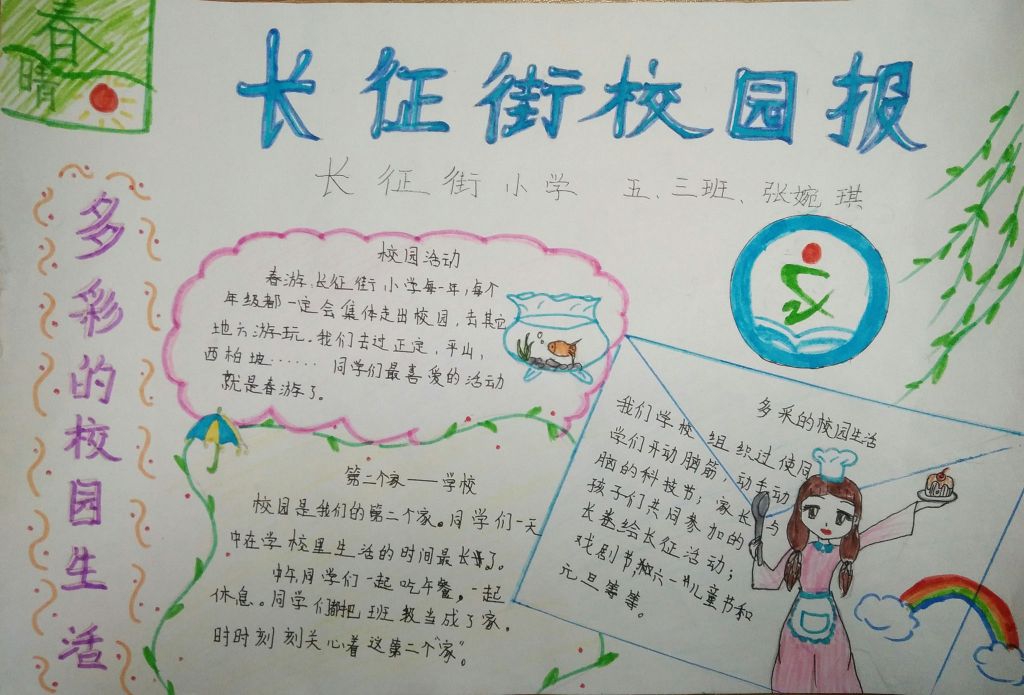 春
晴
长征街校园报
长征街小学 五、三班、张婉琪
多彩的校园生活
校园活动
春游、长征街小学每一年,每个
年级都一定会集体走出校园,去其它
地方游玩。我们去过正定,平山,
西柏坡……同学们最喜爱的活动
就是春游了。
第二个家——学校
校园是我们的第二个家。同学们一天
中在学校里生活的时间最长了。
中午同学们一起吃午餐,一起
休息。同学们都把班级当成了家。
时时刻刻关心着这第二个“家”。
多采的校园生活
我们学校组织过使同
学们开动脑筋,动手动
脑的科技节;家长与
孩子们共同参加的
长卷绘长征活动;
戏剧节;六一儿童节和
元旦等等。